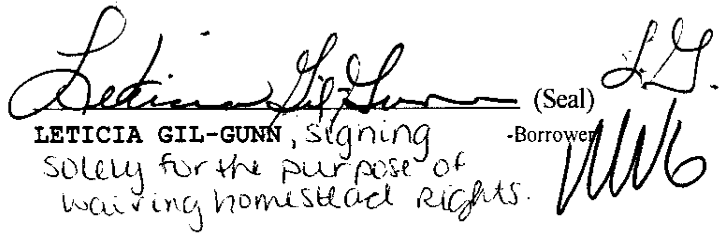 Leticia Gil-Gunn (Seal) L.G.
LETICIA GIL-GUNN, signing -Borrower
solely for the purpose of
waiving homestead Rights.